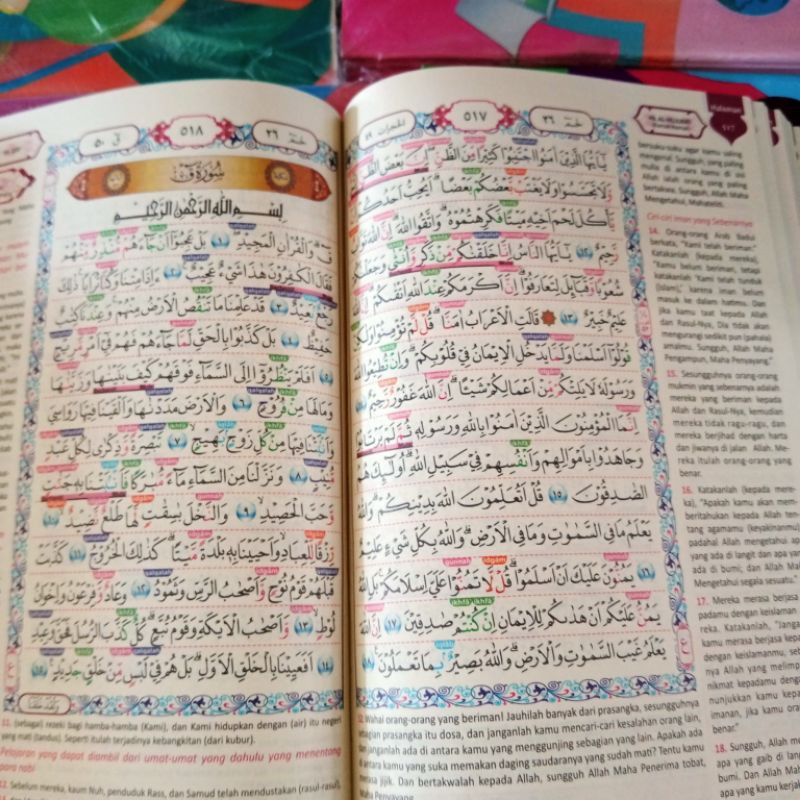 الحجرات ٤٩
٥١٧
جزء ٢٦
Halaman
517
يٰٓاَيُّهَا الَّذِيْنَ اٰمَنُوا اجْتَنِبُوْا كَثِيْرًا مِّنَ الظَّنِّۖ اِنَّ بَعْضَ الظَّنِّ
وَّلَا تَجَسَّسُوْا وَلَا يَغْتَبْ بَّعْضُكُمْ بَعْضًاۗ اَيُحِبُّ اَحَدُكُمْ
يَّأْكُلَ لَحْمَ اَخِيْهِ مَيْتًا فَكَرِهْتُمُوْهُۗ وَاتَّقُوا اللّٰهَۗ اِنَّ اللّٰهَ
رَّحِيْمٌ ١٢ يٰٓاَيُّهَا النَّاسُ اِنَّا خَلَقْنٰكُمْ مِّنْ ذَكَرٍ وَّاُنْثٰى وَجَعَلْنٰكُمْ
شُعُوْبًا وَّقَبَاۤىِٕلَ لِتَعَارَفُوْاۗ اِنَّ اَكْرَمَكُمْ عِنْدَ اللّٰهِ اَتْقٰىكُمْۗ اِنَّ
عَلِيْمٌ خَبِيْرٌ ١٣ قَالَتِ الْاَعْرَابُ اٰمَنَّاۗ قُلْ لَّمْ تُؤْمِنُوْا وَلٰكِنْ
قُوْلُوْٓا اَسْلَمْنَا وَلَمَّا يَدْخُلِ الْاِيْمَانُ فِيْ قُلُوْبِكُمْۗ وَاِنْ تُطِيْعُوا
وَرَسُوْلَهٗ لَا يَلِتْكُمْ مِّنْ اَعْمَالِكُمْ شَيْـًٔاۗ اِنَّ اللّٰهَ غَفُوْرٌ رَّحِيْمٌ ١٤
اِنَّمَا الْمُؤْمِنُوْنَ الَّذِيْنَ اٰمَنُوْا بِاللّٰهِ وَرَسُوْلِهٖ ثُمَّ لَمْ يَرْتَابُوْا
وَجَاهَدُوْا بِاَمْوَالِهِمْ وَاَنْفُسِهِمْ فِيْ سَبِيْلِ اللّٰهِۗ اُولٰۤىِٕكَ هُمُ
الصّٰدِقُوْنَ ١٥ قُلْ اَتُعَلِّمُوْنَ اللّٰهَ بِدِيْنِكُمْۗ وَاللّٰهُ
يَعْلَمُ مَا فِى السَّمٰوٰتِ وَمَا فِى الْاَرْضِۗ وَاللّٰهُ بِكُلِّ شَيْءٍ عَلِيْمٌ
١٦ يَمُنُّوْنَ عَلَيْكَ اَنْ اَسْلَمُوْاۗ قُلْ لَّا تَمُنُّوْا عَلَيَّ اِسْلَامَكُمْۚ بَلِ اللّٰهُ
يَمُنُّ عَلَيْكُمْ اَنْ هَدٰىكُمْ لِلْاِيْمَانِ اِنْ كُنْتُمْ صٰدِقِيْنَ ١٧ اِنَّ اللّٰهَ
يَعْلَمُ غَيْبَ السَّمٰوٰتِ وَالْاَرْضِۗ وَاللّٰهُ بَصِيْرٌۢ بِمَا تَعْمَلُوْنَ ١٨
12. Wahai orang-orang yang beriman! Jauhilah banyak dari prasangka, sesungguhnya
sebagian prasangka itu dosa, dan janganlah kamu mencari-cari kesalahan orang lain,
dan janganlah ada di antara kamu yang menggunjing sebagian yang lain. Apakah ada
di antara kamu yang suka memakan daging saudaranya yang sudah mati? Tentu kamu
merasa jijik. Dan bertakwalah kepada Allah, sungguh Allah Maha Penerima tobat,
Maha Penyayang.
bersuku-suku agar kamu saling
mengenal. Sungguh, yang paling
mulia di antara kamu di sisi
Allah ialah orang yang paling
bertakwa. Sungguh, Allah Maha
Mengetahui, Mahateliti.
Ciri-ciri iman yang Sebenarnya
14. Orang-orang Arab Badui
berkata, "Kami telah beriman."
Katakanlah (kepada mereka),
"Kamu belum beriman, tetapi
katakanlah 'Kami telah tunduk
(Islam),' karena iman belum
masuk ke dalam hatimu. Dan
jika kamu taat kepada Allah
dan Rasul-Nya, Dia tidak akan
mengurangi sedikit pun (pahala)
amalmu. Sungguh, Allah Maha
Pengampun, Maha Penyayang."
15. Sesungguhnya orang-orang
mukmin yang sebenarnya adalah
mereka yang beriman kepada
Allah dan Rasul-Nya, kemudian
mereka tidak ragu-ragu, dan
mereka berjihad dengan harta
dan jiwanya di jalan Allah. Me-
reka itulah orang-orang yang
benar.
16. Katakanlah (kepada mere-
ka), "Apakah kamu akan mem-
beritahukan kepada Allah ten-
tang agamamu (keyakinanmu)
padahal Allah mengetahui apa
yang ada di langit dan apa yang
ada di bumi, dan Allah Maha
Mengetahui segala sesuatu."
17. Mereka merasa berjasa
padamu dengan keislaman
reka. Katakanlah, "Jangan
kamu merasa berjasa kepada
dengan keislamanmu, sebe
nya Allah yang melimpa
nikmat kepadamu dengan
nunjukkan kamu kepada
imanan, jika kamu orang
benar."
18. Sungguh, Allah me
apa yang gaib di langi
bumi. Dan Allah Maha
apa yang kamu kerjak
ق ٥٠
٥١٨
جزء ٢٦
سُوْرَةُ قٓ
بِسْمِ اللّٰهِ الرَّحْمٰنِ الرَّحِيْمِ
قٓ ۗ وَالْقُرْاٰنِ الْمَجِيْدِ ١ بَلْ عَجِبُوْٓا اَنْ جَاۤءَهُمْ مُّنْذِرٌ مِّنْهُمْ
فَقَالَ الْكٰفِرُوْنَ هٰذَا شَيْءٌ عَجِيْبٌ ٢ ءَاِذَا مِتْنَا وَكُنَّا تُرَابًاۚ ذٰلِكَ
رَجْعٌۢ بَعِيْدٌ ٣ قَدْ عَلِمْنَا مَا تَنْقُصُ الْاَرْضُ مِنْهُمْۚ وَعِنْدَنَا كِتٰبٌ
حَفِيْظٌ ٤ بَلْ كَذَّبُوْا بِالْحَقِّ لَمَّا جَاۤءَهُمْ فَهُمْ فِيْٓ اَمْرٍ مَّرِيْجٍ
٥ اَفَلَمْ يَنْظُرُوْٓا اِلَى السَّمَاۤءِ فَوْقَهُمْ كَيْفَ بَنَيْنٰهَا وَزَيَّنّٰهَا
وَمَا لَهَا مِنْ فُرُوْجٍ ٦ وَالْاَرْضَ مَدَدْنٰهَا وَاَلْقَيْنَا فِيْهَا رَوَاسِيَ
وَاَنْۢبَتْنَا فِيْهَا مِنْ كُلِّ زَوْجٍۢ بَهِيْجٍۙ ٧ تَبْصِرَةً وَّذِكْرٰى لِكُلِّ عَبْدٍ
مُّنِيْبٍ ٨ وَنَزَّلْنَا مِنَ السَّمَاۤءِ مَاۤءً مُّبٰرَكًا فَاَنْۢبَتْنَا بِهٖ جَنّٰتٍ
وَّحَبَّ الْحَصِيْدِۙ ٩ وَالنَّخْلَ بٰسِقٰتٍ لَّهَا طَلْعٌ نَّضِيْدٌۙ ١٠
رِّزْقًا لِّلْعِبَادِۙ وَاَحْيَيْنَا بِهٖ بَلْدَةً مَّيْتًاۗ كَذٰلِكَ الْخُرُوْجُ ١١ كَذَّبَتْ
قَبْلَهُمْ قَوْمُ نُوْحٍ وَّاَصْحٰبُ الرَّسِّ وَثَمُوْدُ ١٢ وَعَادٌ وَّفِرْعَوْنُ وَاِخْوَانُ
لُوْطٍۙ ١٣ وَّاَصْحٰبُ الْاَيْكَةِ وَقَوْمُ تُبَّعٍۗ كُلٌّ كَذَّبَ الرُّسُلَ فَحَقَّ وَعِيْدِ
١٤ اَفَعَيِيْنَا بِالْخَلْقِ الْاَوَّلِۗ بَلْ هُمْ فِيْ لَبْسٍ مِّنْ خَلْقٍ جَدِيْدٍ ١٥
وَلَقَدْ خَلَقْنَا
11. (sebagai) rezeki bagi hamba-hamba (Kami), dan Kami hidupkan dengan (air) itu negeri
yang mati (tandus). Seperti itulah terjadinya kebangkitan (dari kubur).
Pelajaran yang dapat diambil dari umat-umat yang dahulu yang menentang
para nabi
12. Sebelum mereka, kaum Nuh, penduduk Rass, dan Samud telah mendustakan (rasul-rasul),